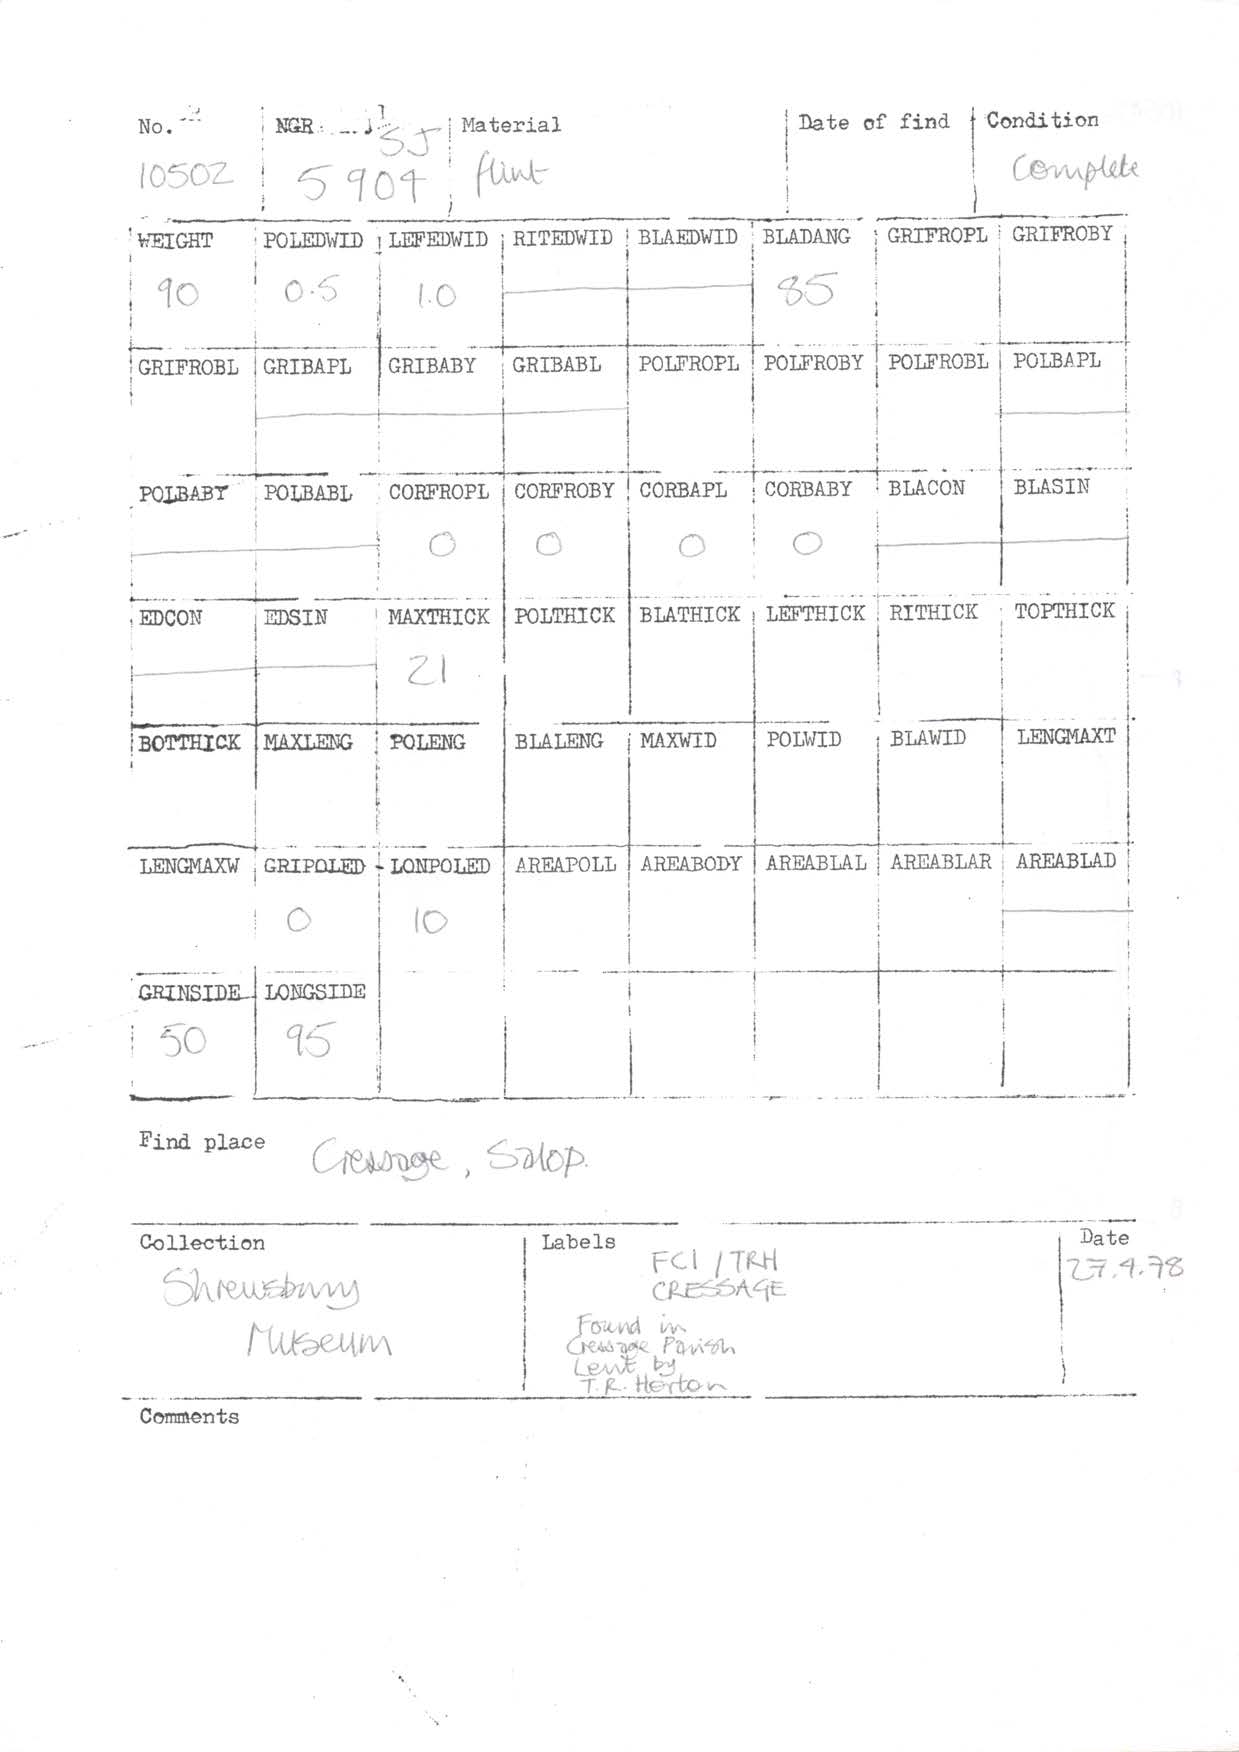 No. NGR Material Date of find Condition
10502 SJ 5904 flint Complete
WEIGHT POLEDWID LEFEDWID RITEDWID BLAEDWID BLADANG GRIFROPL GRIFROBY
90 0.5 1.0 85
GRIFROBL GRIBAPL GRIBABY GRIBABL POLFROPL POLFROBY POLFROBL POLBAPL
POLBABY POLBABL CORFROPL CORFROBY CORBAPL CORBABY BLACON BLASIN
0 0 0 0
EDCON EDSIN MAXTHICK POLTHICK BLATHICK LEFTHICK RITHICK TOPTHICK
21
BOTTHICK MAXLENG POLENG BLALENG MAXWID POLWID BLAWID LENGMAXT
LENGMAXW GRIPOLED LONPOLED AREAPOLL AREABODY AREABLAL AREABLAR AREABLAD
0 10
GRINSIDE LONGSIDE
50 95
Find place Cressage, Salop.
Collection Labels Date
Shrewsbury
Museum
FC1 / TRH
CRESSAGE
Found in
Cressage Parish
Lent by
T.R. Horton
27.4.78
Comments